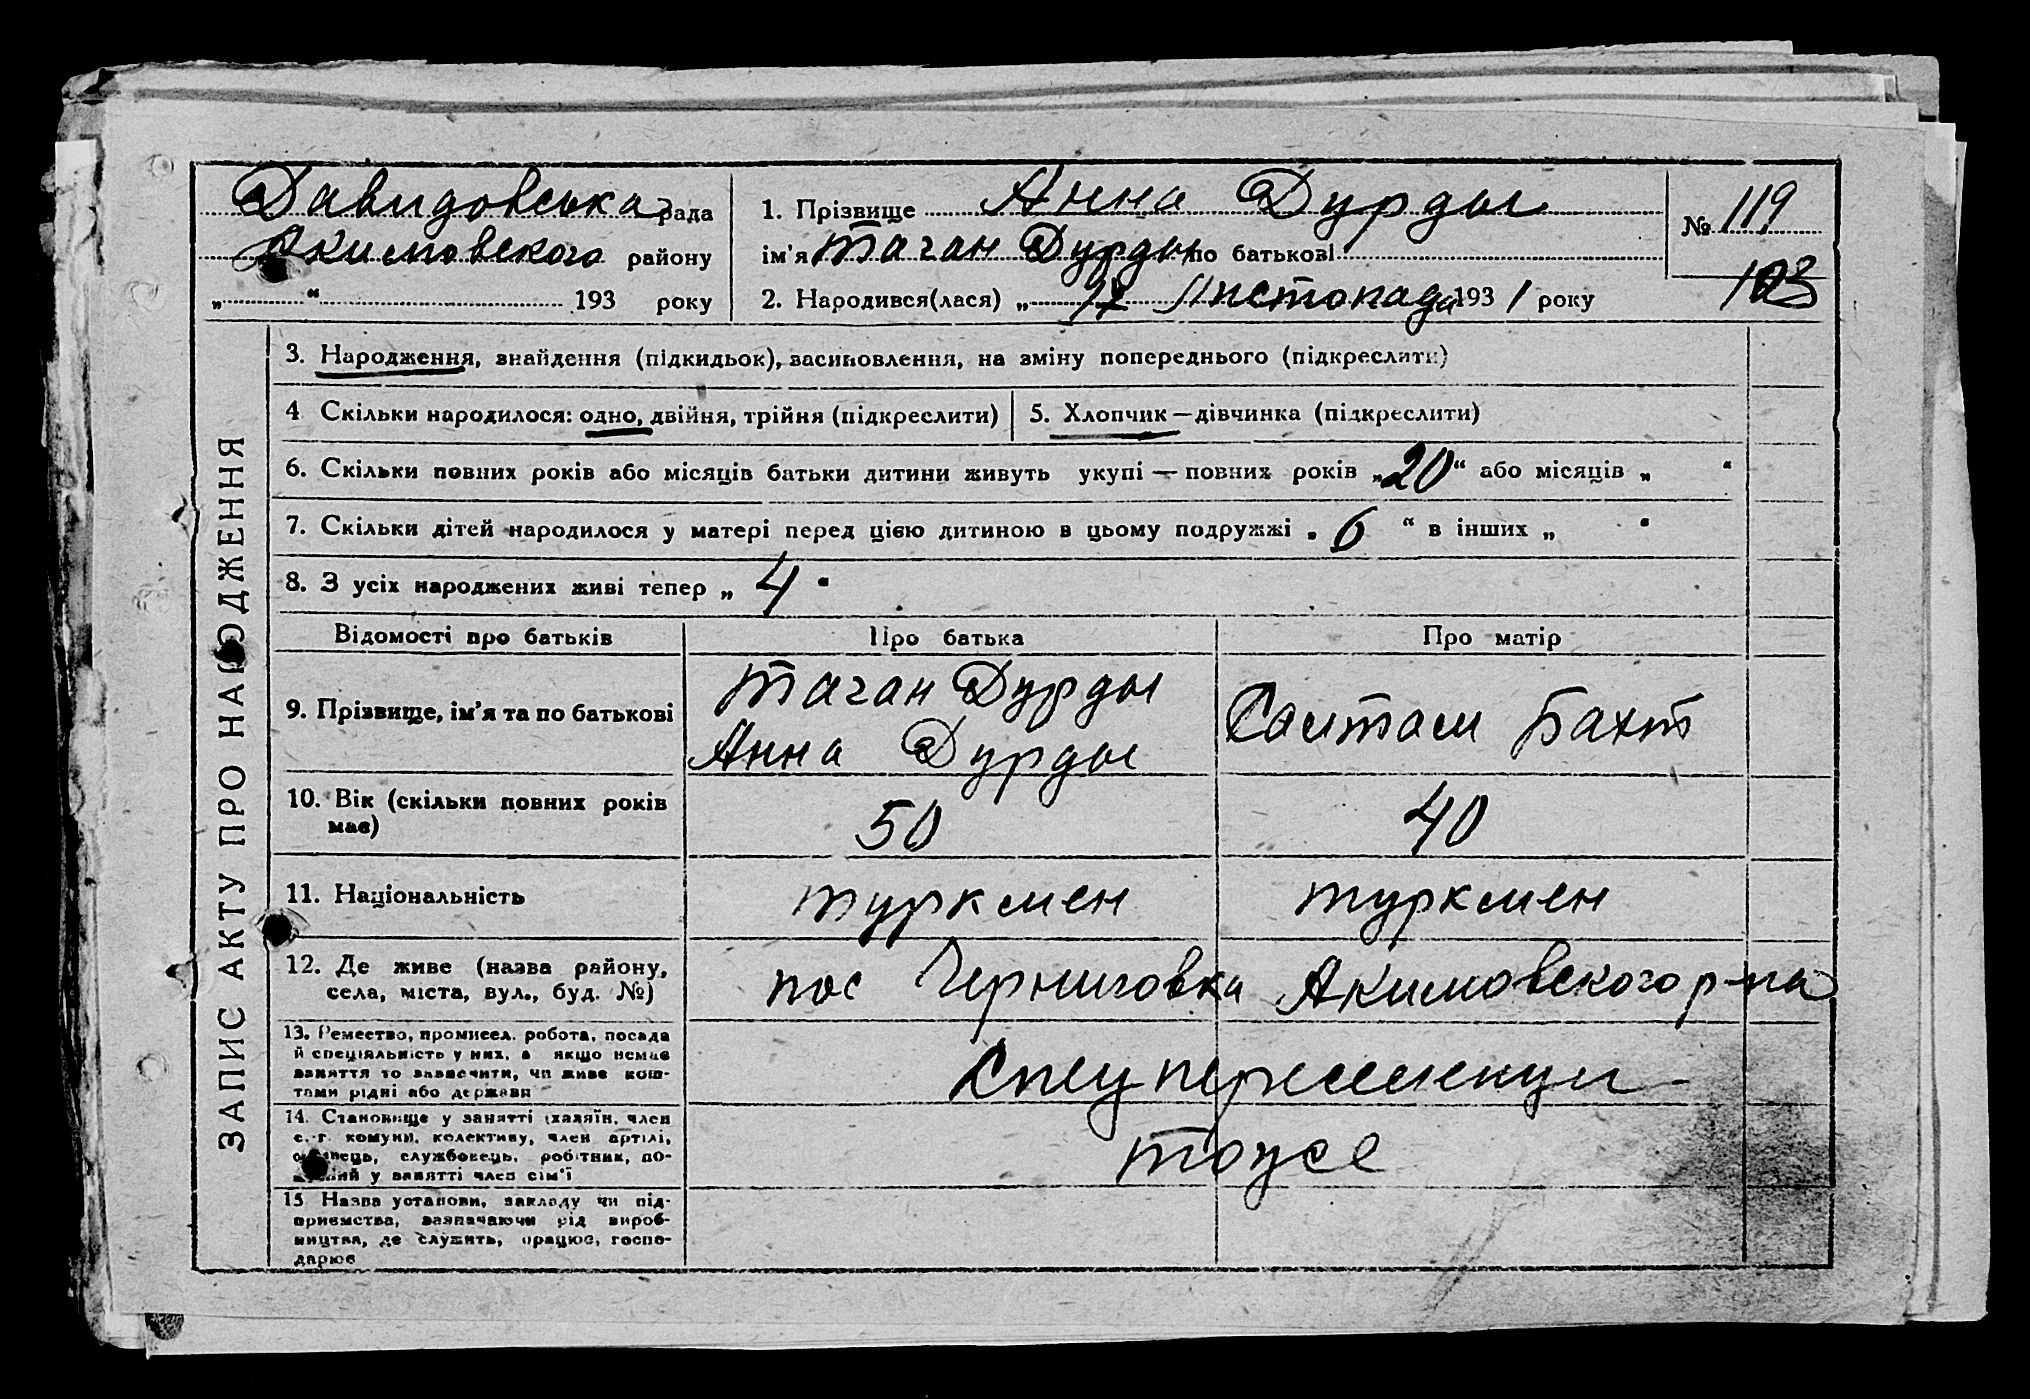 Давидовська рада
Акимовского району
„ “ 193 року
1. Прізвище Анна Дурды
ім'я Таган Дурды по батькові
2. Народився(лася) „ 17 Листопада 1931 року
№ 119
103
ЗАПИС АКТУ ПРО НАРОДЖЕННЯ
3. Народження, знайдення (підкидьок), засиновлення, на зміну попереднього (підкреслити)
4 Скільки народилося: одно, двійня, трійня (підкреслити)
5. Хлопчик — дівчинка (підкреслити)
6. Скільки повних років або місяців батьки дитини живуть укупі — повних років „20“ або місяців „ “
7. Скільки дітей народилося у матері перед цією дитиною в цьому подружжі „ 6 “ в інших „ “
8. З усіх народжених живі тепер „ 4 "
Відомості про батьків Про батька Про матір
9. Прізвище, ім'я та по батькові
Таган Дурды
Анна Дурды
Бахт
10. Вік (скільки повних років
має)
50
40
11. Національність
туркмен
туркмен
12. Де живе (назва району,
села, міста, вул., буд. №)
пос Черниговка Акимовского р-на
13. Ремество, промисел, робота, посада
й спеціяльність у них, а якщо немає
заняття то зазначити, чи живе кош-
тами рідні або держави
Спецпереселенцы
14. Становище у занятті (хазяїн, член
с.-г. комуни, колективу, член артілі,
службовець, робітник, по-
у занятті член сім'ї
тоже
15 Назва установи, закладу чи під-
приємства, зазначаючи рід вироб-
ництва, де служить, працює, госпо-
дарює